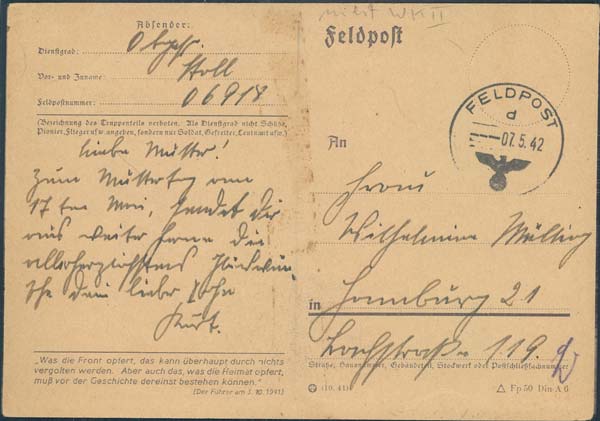 Absender:
Dienstgrad: Obgefr.
Vor- und Zuname: Stoll
Feldpostnummer: 06918
(Bezeichnung des Truppenteils verboten. Als Dienstgrad nicht Schütze,
Pionier, Flieger usw. angeben, sondern nur Soldat, Gefreiter, Leutnant usw.)
Liebe Mutter!
Zum Muttertag am
17ten Mai, sendet Dir
aus weiter Ferne die
allerherzlichsten Glückwün-
sche Dein lieber Sohn
Kurt.
„Was die Front opfert, das kann überhaupt durch nichts
vergolten werden. Aber auch das, was die Heimat opfert,
muß vor der Geschichte dereinst bestehen können."
(Der Führer am 3. 10. 1941)
WK II
Feldpost
FELDPOST
d
07.5.42
An
Frau
Wilhelmine
in Hamburg 21
Bachstraße 119.
Straße, Hausnummer, Gebäudeteil, Stockwerk oder Postschließfachnummer
(10. 41)
Fp 50 Din A 6